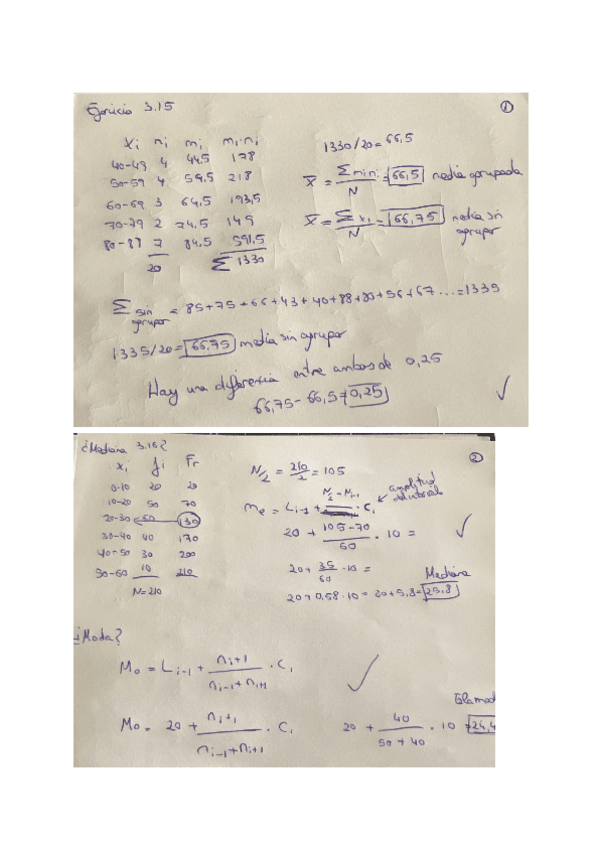 Ejercicio 3.15 ①
xi ni mi mi·ni
40-49 4 44.5 178
50-59 4 54.5 218
60-69 3 64,5 193,5
70-79 2 74.5 149
80-89 7 84.5 591,5
20 Σ 1330
1330/20 = 66,5
x̄ = Σ mi ni / N = 66,5 media agrupada
x̄ = Σ xi / N = 66,75 media sin agrupar
Σ sin agrupar = 85+75+66+43+40+88+80+56+67...=1335
1335/20 = 66,75 media sin agrupar
Hay una diferencia entre ambos de 0,25
66,75 - 66,5 = 0,25
¿Mediana 3.16? ②
xi fi Fr
0-10 20 20
10-20 50 70
20-30 60 130
30-40 40 170
40-50 30 200
50-60 10 210
N=210
N/2 = 210/2 = 105
Me = Li-1 + N/2 - Ni-1 · Ci amplitud
20 + 105-70 / 60 · 10 =
20 + 35 / 60 · 10 =
Mediana
20+0,58·10 = 20+5,8 = 25,8
¿Moda?
Mo = Li-1 + ni+1 / ni-1 + ni+1 · Ci
Es la mod
Mo = 20 + ni+1 / ni-1 + ni+1 · Ci 20 + 40 / 50 + 40 · 10 = 24,4